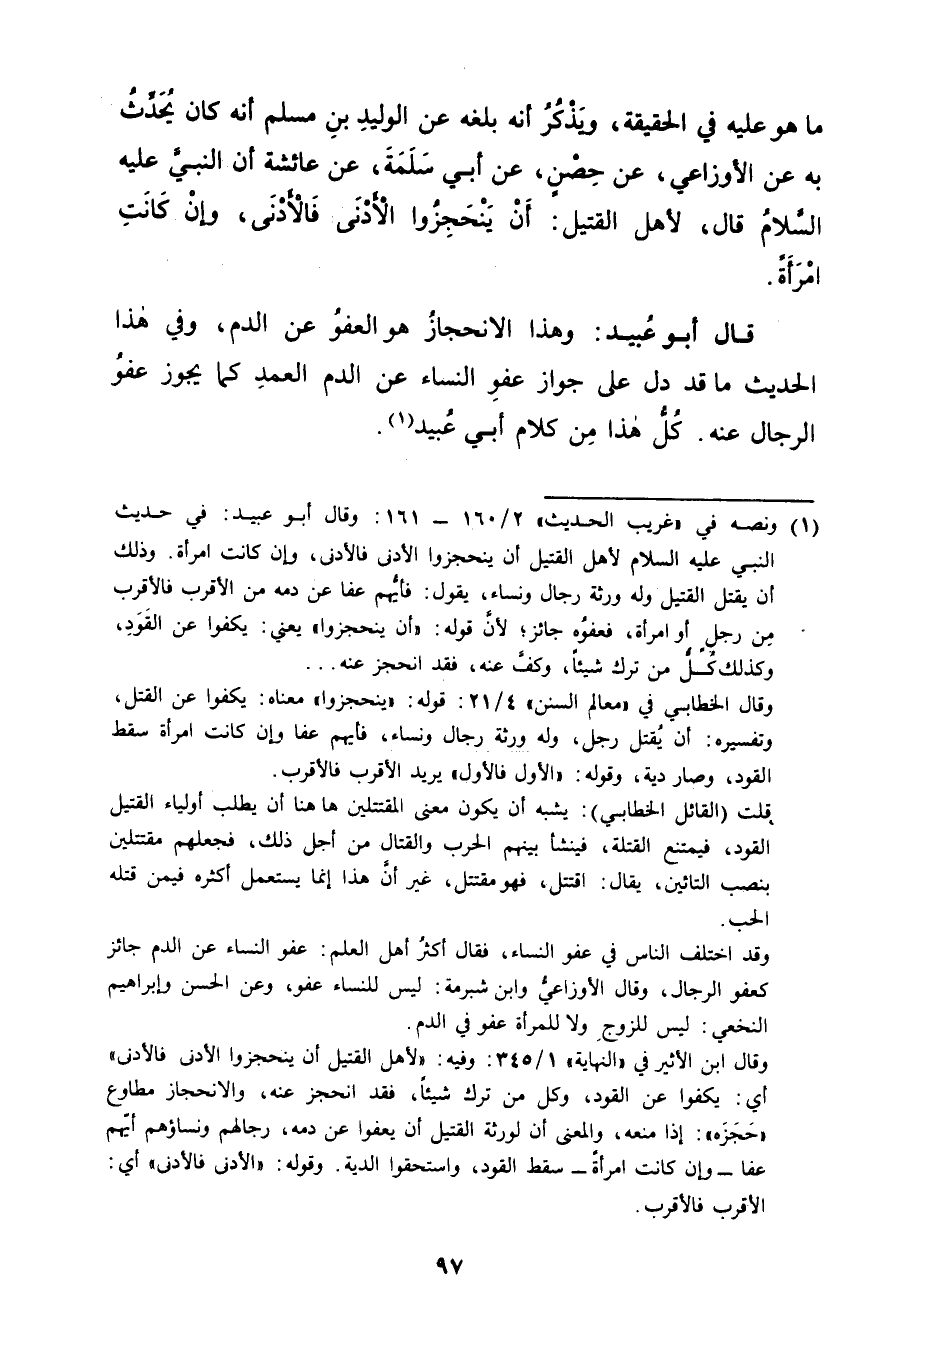 ما هو عليه في الحقيقة، ويَذْكُرُ أنه بلغه عن الوليدِ بنِ مسلم أنه كان يُحَدِّثُ
به عن الأوزاعي، عن حِصْنٍ، عن أبي سَلَمَةَ، عن عائشة أن النبيَّ عليه
السَّلامُ قال، لأهل القتيل: أَنْ يَنْحَجِزُوا الْأَدْنَى فَالْأَدْنَى، وإنْ كَانَتِ
امْرَأَةً.
قال أبو عُبيد: وهذا الانحجازُ هو العفوُ عن الدم، وفي هٰذا
الحديث ما قد دل على جواز عفوِ النساء عن الدم العمدِ كما يجوز عفوُ
الرجال عنه. كُلُّ هٰذا مِن كلام أبي عُبيد(١).
(١) ونصه في «غريب الحديث» ١٦٠/٢ ـ ١٦١: وقال أبو عبيد: في حديث
النبي عليه السلام لأهل القتيل أن ينحجزوا الأدنى فالأدنى، وإن كانت امرأة. وذلك
أن يقتل القتيل وله ورثة رجال ونساء، يقول: فأيُّهم عفا عن دمه من الأقرب فالأقرب
مِن رجلٍ أو امرأة، فعفوُه جائز؛ لأنَّ قوله: «أن ينحجزوا» يعني: يكفوا عن القَوَدِ،
وكذلك كُلُّ من ترك شيئاً، وكفَّ عنه، فقد انحجز عنه...
وقال الخطابي في «معالم السنن» ٢١/٤: قوله: «ينحجزوا» معناه: يكفوا عن القتل،
وتفسيره: أن يُقتل رجل، وله ورثة رجال ونساء، فأيهم عفا وإن كانت امرأة سقط
القود، وصار دية، وقوله: «الأول فالأول» يريد الأقرب فالأقرب.
قلت (القائل الخطابي): يشبه أن يكون معنى المقتتلين ها هنا أن يطلب أولياء القتيل
القود، فيمتنع القتلة، فينشأ بينهم الحرب والقتال من أجل ذلك، فجعلهم مقتتلين
بنصب التائين، يقال: اقتتل، فهو مقتتل، غير أنَّ هذا إنما يستعمل أكثره فيمن قتله
الحب.
وقد اختلف الناس في عفو النساء، فقال أكثرُ أهل العلم: عفو النساء عن الدم جائز
كعفو الرجال، وقال الأوزاعيُّ وابن شبرمة: ليس للنساء عفو، وعن الحسن وإبراهيم
النخعي: ليس للزوجِ ولا للمرأة عفو في الدم.
وقال ابن الأثير في «النهاية» ٣٤٥/١: وفيه: «لأهل القتيل أن ينحجزوا الأدنى فالأدنى»
أي: يكفوا عن القود، وكل من ترك شيئاً، فقد انحجز عنه، والانحجاز مطاوع
«حَجَزَه»: إذا منعه، والمعنى أن لورثة القتيل أن يعفوا عن دمه، رجالهم ونساؤهم أيّهم
عفا ـ وإن كانت امرأةً ـ سقط القود، واستحقوا الدية. وقوله: «الأدنى فالأدنى» أي:
الأقرب فالأقرب.
٩٧